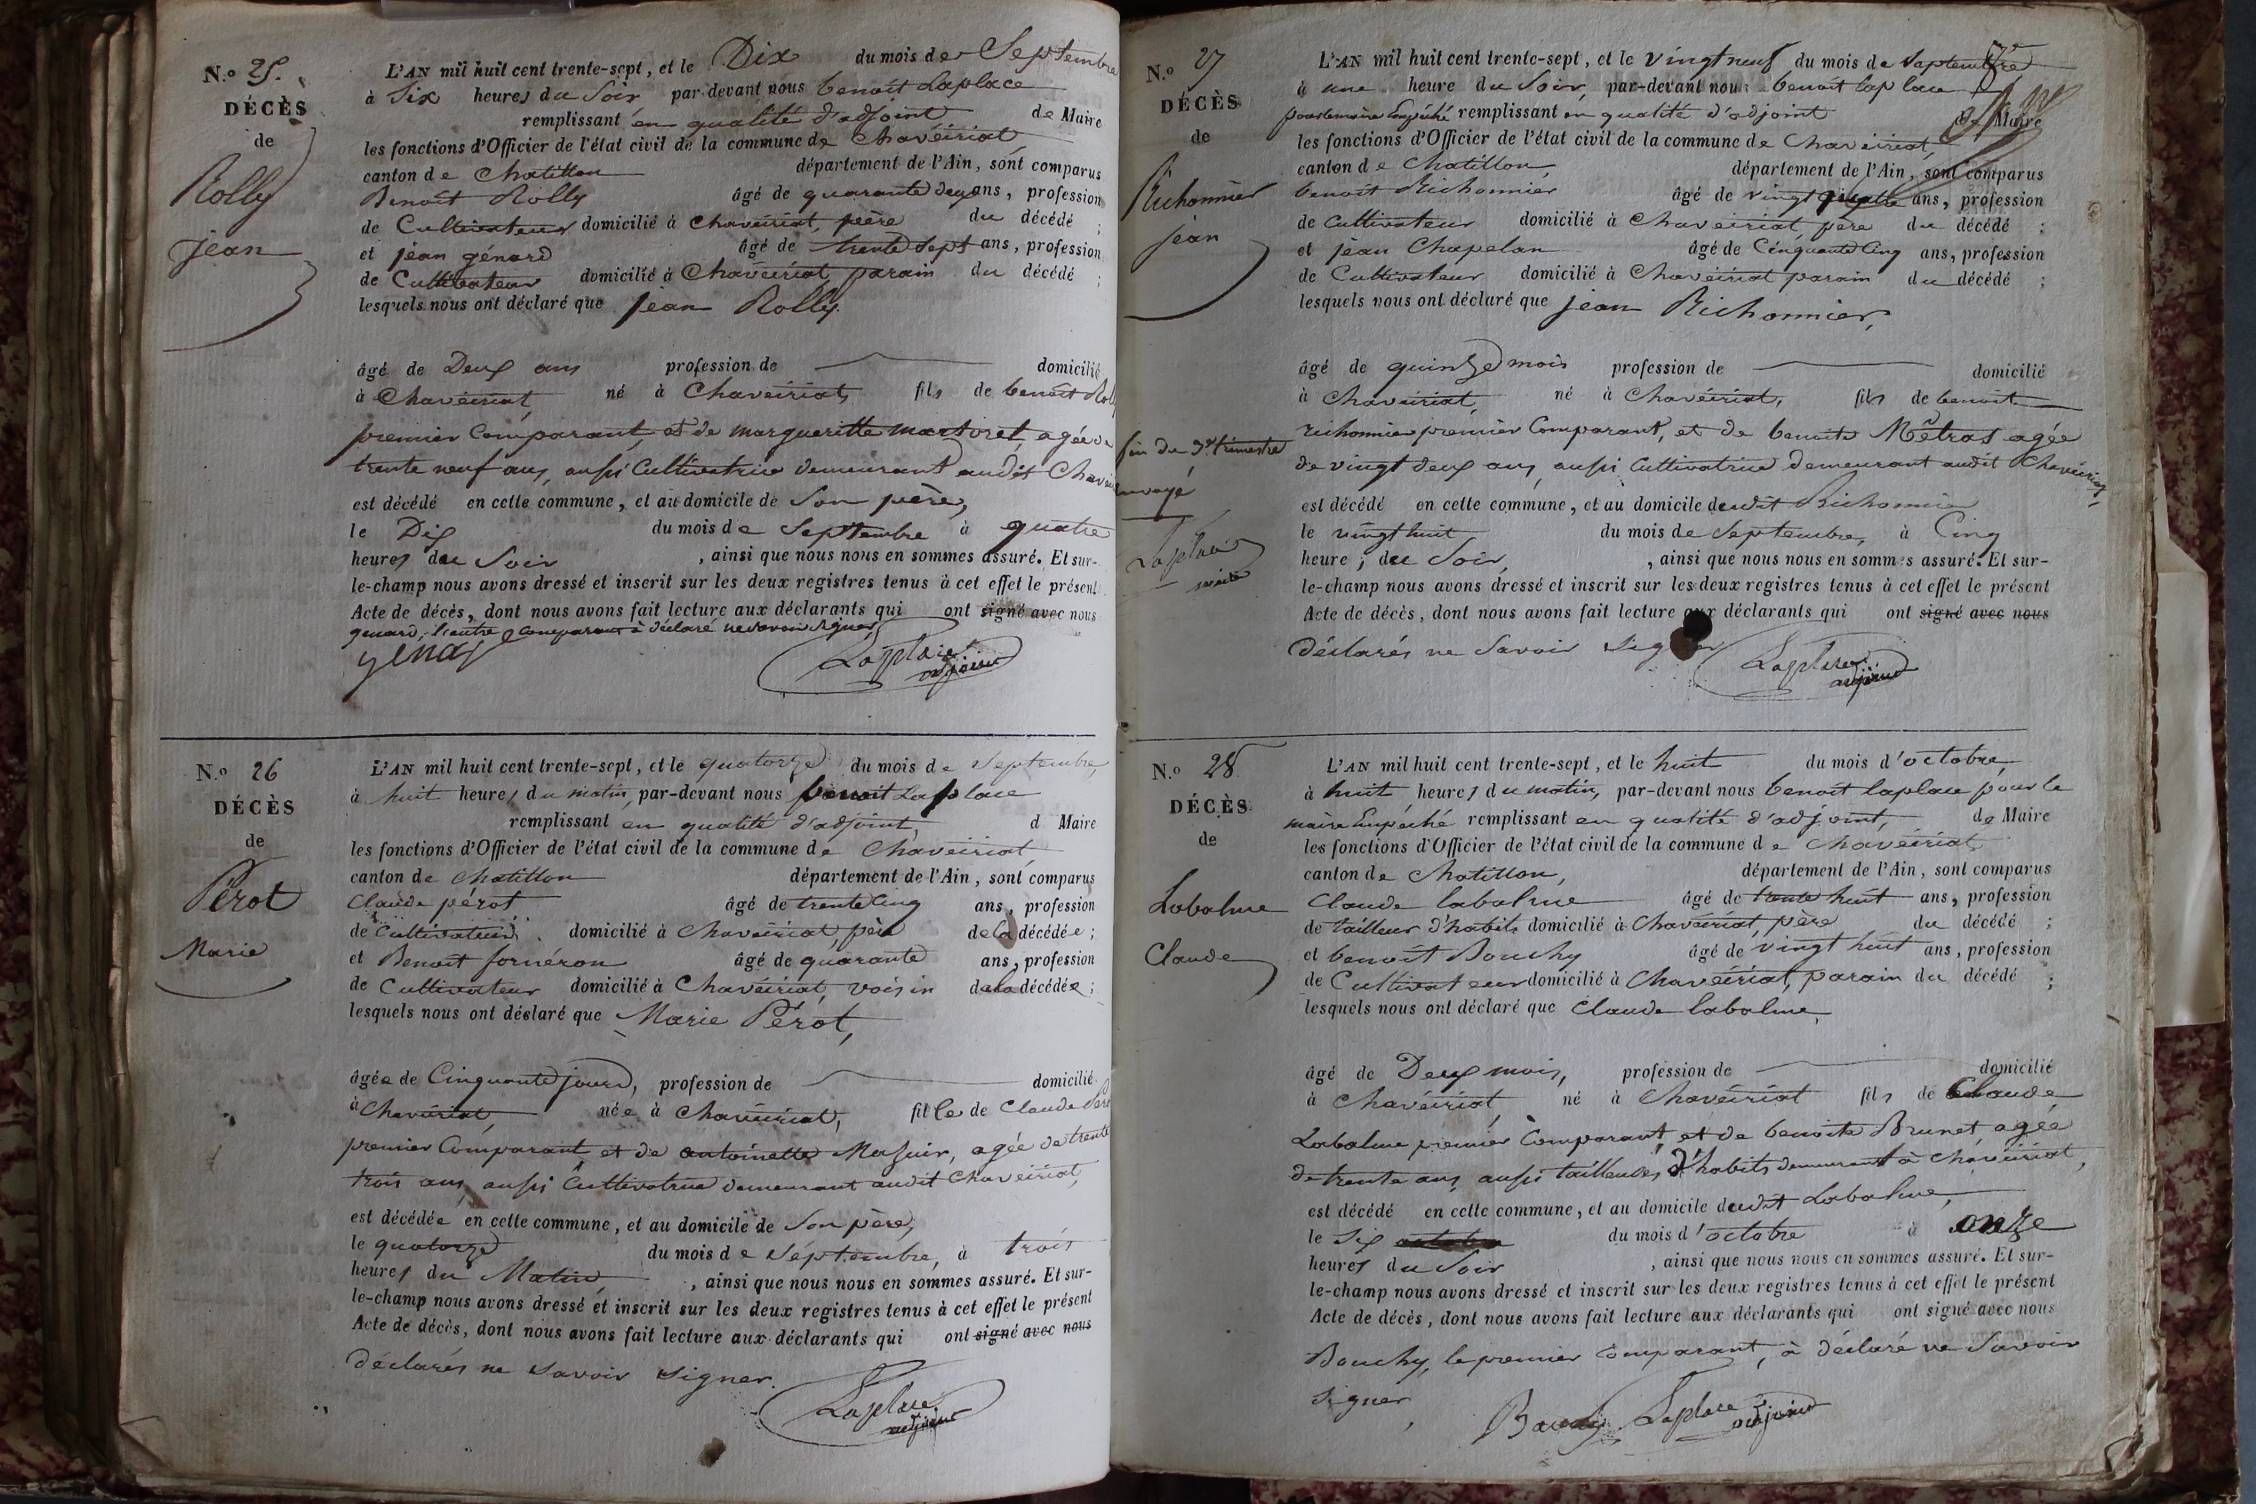 N.º 25.
DÉCÈS
de
Rolly
jean
L'AN mil huit cent trente-sept, et le Dix du mois de Septembre
à Six heures du Soir par-devant nous benoit Laplace
remplissant en qualité d'adjoint de Maire
les fonctions d'Officier de l'état civil de la commune de Chaveïriat
canton de Chatillon département de l'Ain, sont comparus
Benoit Rolly âgé de quarante deux ans, profession
de Cultivateur domicilié à Chaveïriat, père du décédé ;
et jean génard âgé de trente sept ans, profession
de Cultivateur domicilié à Chaveïriat parain du décédé ;
lesquels nous ont déclaré que jean Rolly.
âgé de Deux ans profession de domicilié
à Chaveïriat né à Chaveïriat, fils de benoit
premier Comparant, et de margueritte agée de
trente neuf ans, aussi Cultivatrice demeurant audit
est décédé en cette commune, et au domicile de Son père,
le Dix du mois de Septembre à quatre
heures du Soir, ainsi que nous nous en sommes assuré. Et sur-
le-champ nous avons dressé et inscrit sur les deux registres tenus à cet effet le présent
Acte de décès, dont nous avons fait lecture aux déclarants qui ont signé avec nous
genard, l'autre comparant à déclaré ne savoir signer,
genard Laplace adjoint
N.º 26
DÉCÈS
de
Pérot
Marie
L'AN mil huit cent trente-sept, et le quatorze du mois de Septembre,
à huit heures du matin, par-devant nous benoit Laplace
remplissant en qualité d'adjoint, d Maire
les fonctions d'Officier de l'état civil de la commune de Chaveïriat
canton de Chatillon département de l'Ain, sont comparus
Claude pérot âgé de trente Cinq ans, profession
de Cultivateur domicilié à Chaveïriat, père de la décédée ;
et Benoit fornéron âgé de quarante ans, profession
de Cultivateur domicilié à Chaveïriat, voisin de la décédée ;
lesquels nous ont déclaré que Marie Pérot,
âgée de Cinquante jours, profession de domicilié
à Chaveïriat, née à Chaveïriat, fille de Claude
premier Comparant, et de antoinette agée de trente
trois ans, aussi Cultivatrice demeurant audit Chaveïriat,
est décédée en cette commune, et au domicile de Son père,
le quatorze du mois de Septembre, à trois
heures du Matin, ainsi que nous nous en sommes assuré. Et sur-
le-champ nous avons dressé et inscrit sur les deux registres tenus à cet effet le présent
Acte de décès, dont nous avons fait lecture aux déclarants qui ont signé avec nous
déclarés ne savoir signer.
Laplace adjoint
N.º 27
DÉCÈS
de
Richonnier
jean
fin du 3e trimestre
Laplace
L'AN mil huit cent trente-sept, et le vingt neuf du mois de Septembre
à une heure du Soir, par-devant nous benoit laplace
pour le maire Empéché remplissant en qualité d'adjoint de Maire
les fonctions d'Officier de l'état civil de la commune de Chaveïriat,
canton de Chatillon, département de l'Ain, sont comparus
benoit Richonnier âgé de vingt quatre ans, profession
de Cultivateur domicilié à Chaveïriat, père du décédé ;
et jean Chapelan âgé de Cinquante Cinq ans, profession
de Cultivateur domicilié à Chaveïriat parain du décédé ;
lesquels nous ont déclaré que jean Richonnier,
âgé de quinze mois profession de domicilié
à Chaveïriat, né à Chaveïriat, fils de benoit
richonnier premier Comparant, et de benoite Mêtras agée
de vingt deux ans, aussi Cultivatrice demeurant audit Chaveïriat,
est décédé en cette commune, et au domicile dudit Richonnier
le vingt huit du mois de Septembre, à Cinq
heures du Soir, ainsi que nous nous en sommes assuré. Et sur-
le-champ nous avons dressé et inscrit sur les deux registres tenus à cet effet le présent
Acte de décès, dont nous avons fait lecture aux déclarants qui ont signé avec nous
déclarés ne Savoir Signer
Laplace adjoint
N.º 28
DÉCÈS
de
Labalme
Claude
L'AN mil huit cent trente-sept, et le huit du mois d'octobre,
à huit heures du matin, par-devant nous benoit laplace pour le
maire Empéché remplissant en qualité d'adjoint, de Maire
les fonctions d'Officier de l'état civil de la commune de Chaveïriat
canton de Chatillon, département de l'Ain, sont comparus
Claude labalme âgé de trente huit ans, profession
de tailleur d'habits domicilié à Chaveïriat, père du décédé ;
et benoit Bouchy âgé de vingt huit ans, profession
de Cultivateur domicilié à Chaveïriat, parain du décédé ;
lesquels nous ont déclaré que Claude labalme,
âgé de Deux mois, profession de domicilié
à Chaveïriat, né à Chaveïriat fils de Claude
Labalme premier Comparant, et de benoite Brunet, agée
de trente ans, aussi tailleuse, d'habits demeurant à Chaveïriat,
est décédé en cette commune, et au domicile dudit Labalme,
le Six du mois d'octobre à onze
heures du Soir, ainsi que nous nous en sommes assuré. Et sur-
le-champ nous avons dressé et inscrit sur les deux registres tenus à cet effet le présent
Acte de décès, dont nous avons fait lecture aux déclarants qui ont signé avec nous
Bouchy, le premier comparant, à déclaré ne Savoir
Signer,
Bouchy Laplace adjoint